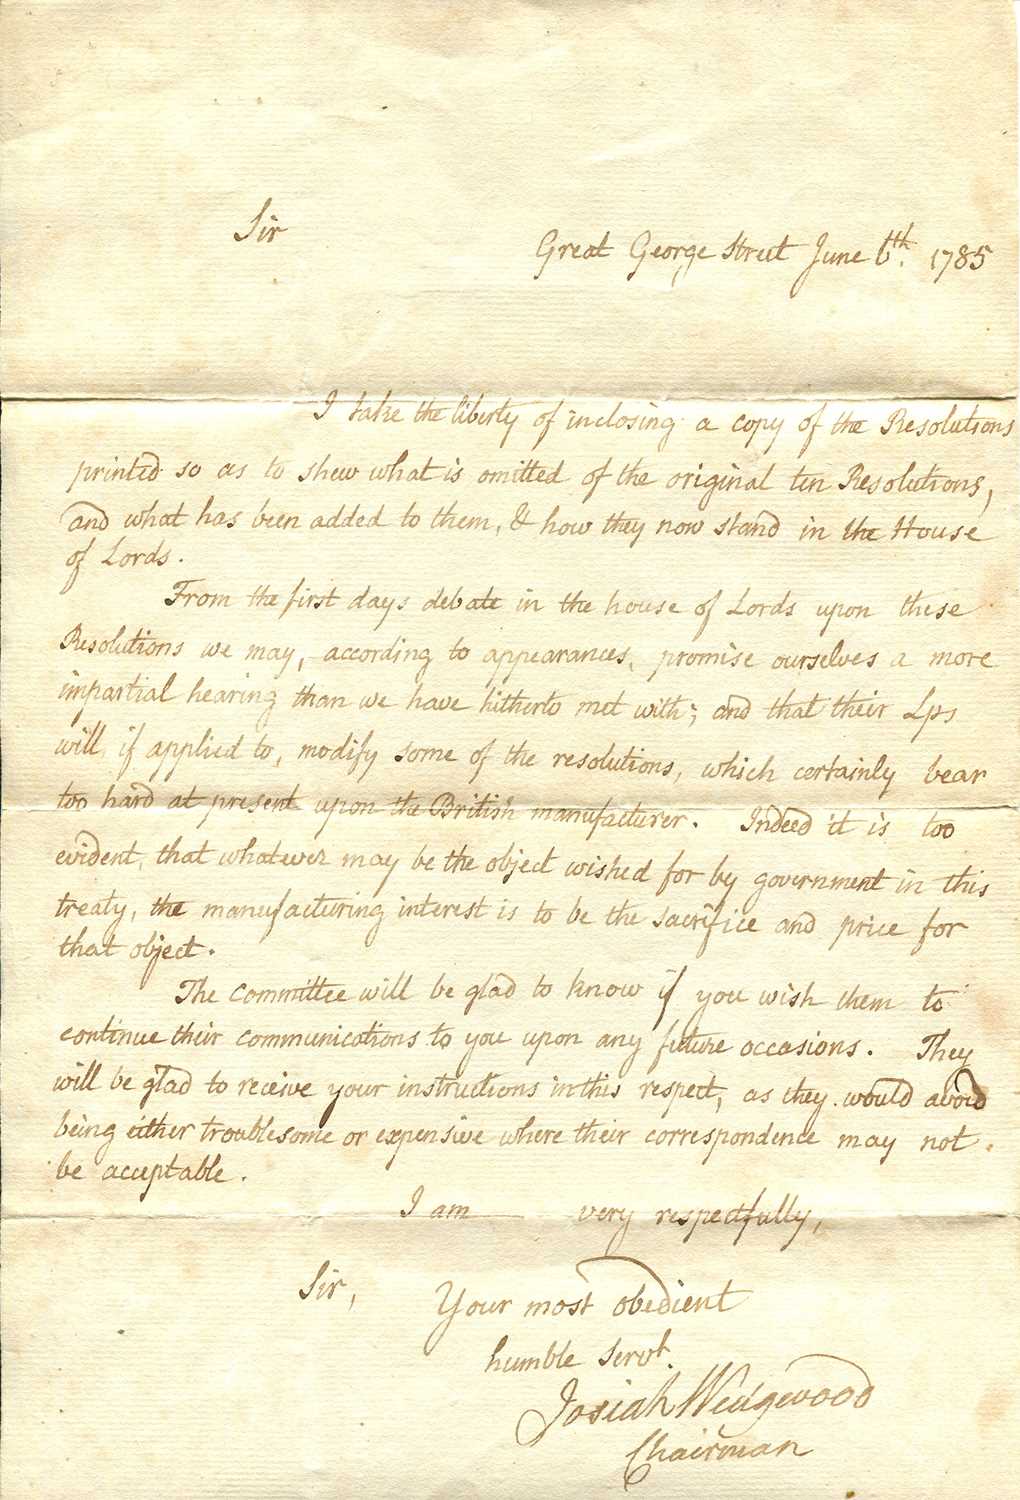 Sir
Great George Street June 6th. 1785
I take the liberty of inclosing a copy of the Resolutions
printed so as to shew what is omitted of the original ten Resolutions,
and what has been added to them, & how they now stand in the House
of Lords.
From the first days debate in the house of Lords upon these
Resolutions we may, according to appearances, promise ourselves a more
impartial hearing than we have hitherto met with; and that their Lps
will, if applied to, modify some of the resolutions, which certainly bear
too hard at present upon the British manufacturer. Indeed it is too
evident, that whatever may be the object wished for by government in this
treaty, the manufacturing interest is to be the sacrifice and price for
that object.
The Committee will be glad to know if you wish them to
continue their communications to you upon any future occasions. They
will be glad to receive your instructions in this respect, as they would avoid
being either troublesome or expensive where their correspondence may not
be acceptable.
I am very respectfully,
Sir,
Your most obedient
humble servt.
Josiah Wedgewood
Chairman